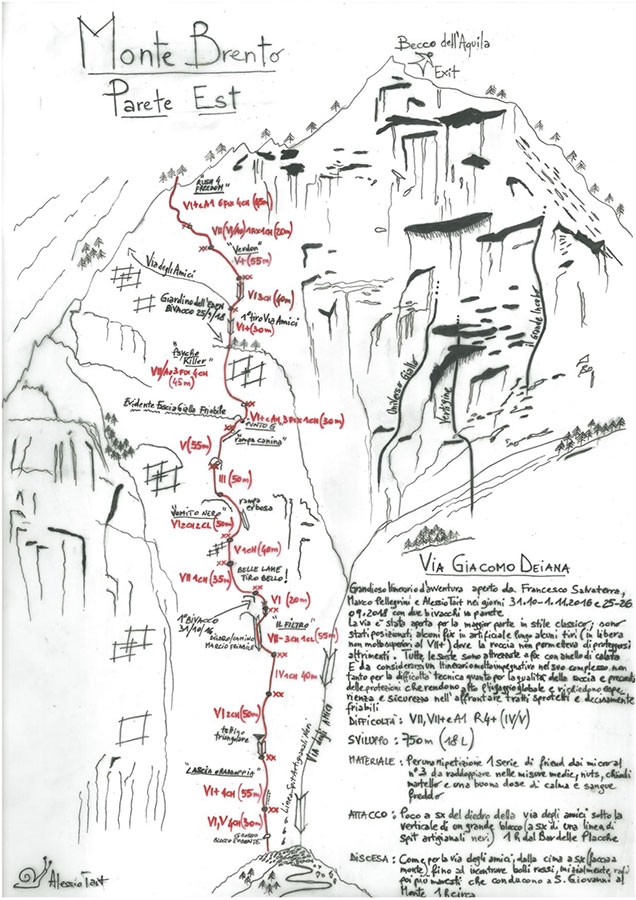 Monte Brento
Parete Est
Becco dell'Aquila
Exit
"Rush 4
Freedom"
VI+ e A1 6FIX 4CH (45m)
VII (VI/A0) 1FIX 1CH (20m)
"Verdon"
V+ (55m)
Via degli Amici
VI 3CH (40m)
Giardino dell'Eden
Bivacco 25/9/18
1° tiro Via Amici
VI+ (30m)
"Psycho
Killer"
VII/A0 3FIX 4CH
(45m)
Universo Giallo
Vertigine
il Grande Incubo
Evidente Fascia Gialla Friabile
VI+ e A1, 3FIX 1CH (30m)
"Punto G"
V (55m)
"rampa canino"
III (50m)
rampa
erbosa
"Vomito Nero"
VI 2CH 2CL (50m)
V 1CH (40m)
VII 1CH (35m)
BELLE LAME
TIRO BELLO!
VI (20m)
1° Bivacco
31/10/16
"IL FILTRO"
VII- 3CH 1CL (55m)
IV 1CH 40m
VI 2CH (50m)
tettino
triangolare
VI+ 4CH (55m)
VI, V 4CH (30m)
Linea Spit Artigianali Neri
VIA degli AMICI
Via Giacomo Deiana
Grandioso itinerario d'avventura aperto da Francesco Salvaterra,
Marco Pellegrini e Alessio Tait nei giorni 31.10-1.11.2016 e 25-26
09.2018 con due bivacchi in parete
La via è stata aperta per la maggior parte in stile classico; sono
stati posizionati alcuni fix in artificiale lungo alcuni tiri (in libera
non molto superiori al VII+) dove la roccia non permetteva di proteggersi
altrimenti. Tutte le soste sono attrezzate a fix con anello di calata
E da considerarsi un itinerario molto impegnativo nel suo complesso non
tanto per la difficoltà tecnica quanto per la qualità della roccia e precarietà
delle protezioni che rendono alto l'ingaggio globale e richiedono espe
rienza e sicurezza nell'affrontare tratti sprotetti e decisamente
friabili
DIFFICOLTÀ: VII, VII+ e A1 R4+ (IV/V)
SVILUPPO: 750m (18 L)
MATERIALE: Per una ripetizione 1 serie di friend dai micro al
n°3 da raddoppiare nelle misure medie, nuts, chiodi
martello e una buona dose di calma e sangue
freddo
ATTACCO: Poco a sx del diedro della via degli amici sotto la
verticale di un grande blocco (a sx di una linea di
spit artigianali neri) 1h dal Bar delle Placche
DISCESA: Come per la via degli amici, dalla cima a sx (faccia a
monte) fino ad incontrare bolli rossi, inizialmente radi
poi più marcati che conducono a S. Giovanni al
Monte 1h circa
Alessio Tait